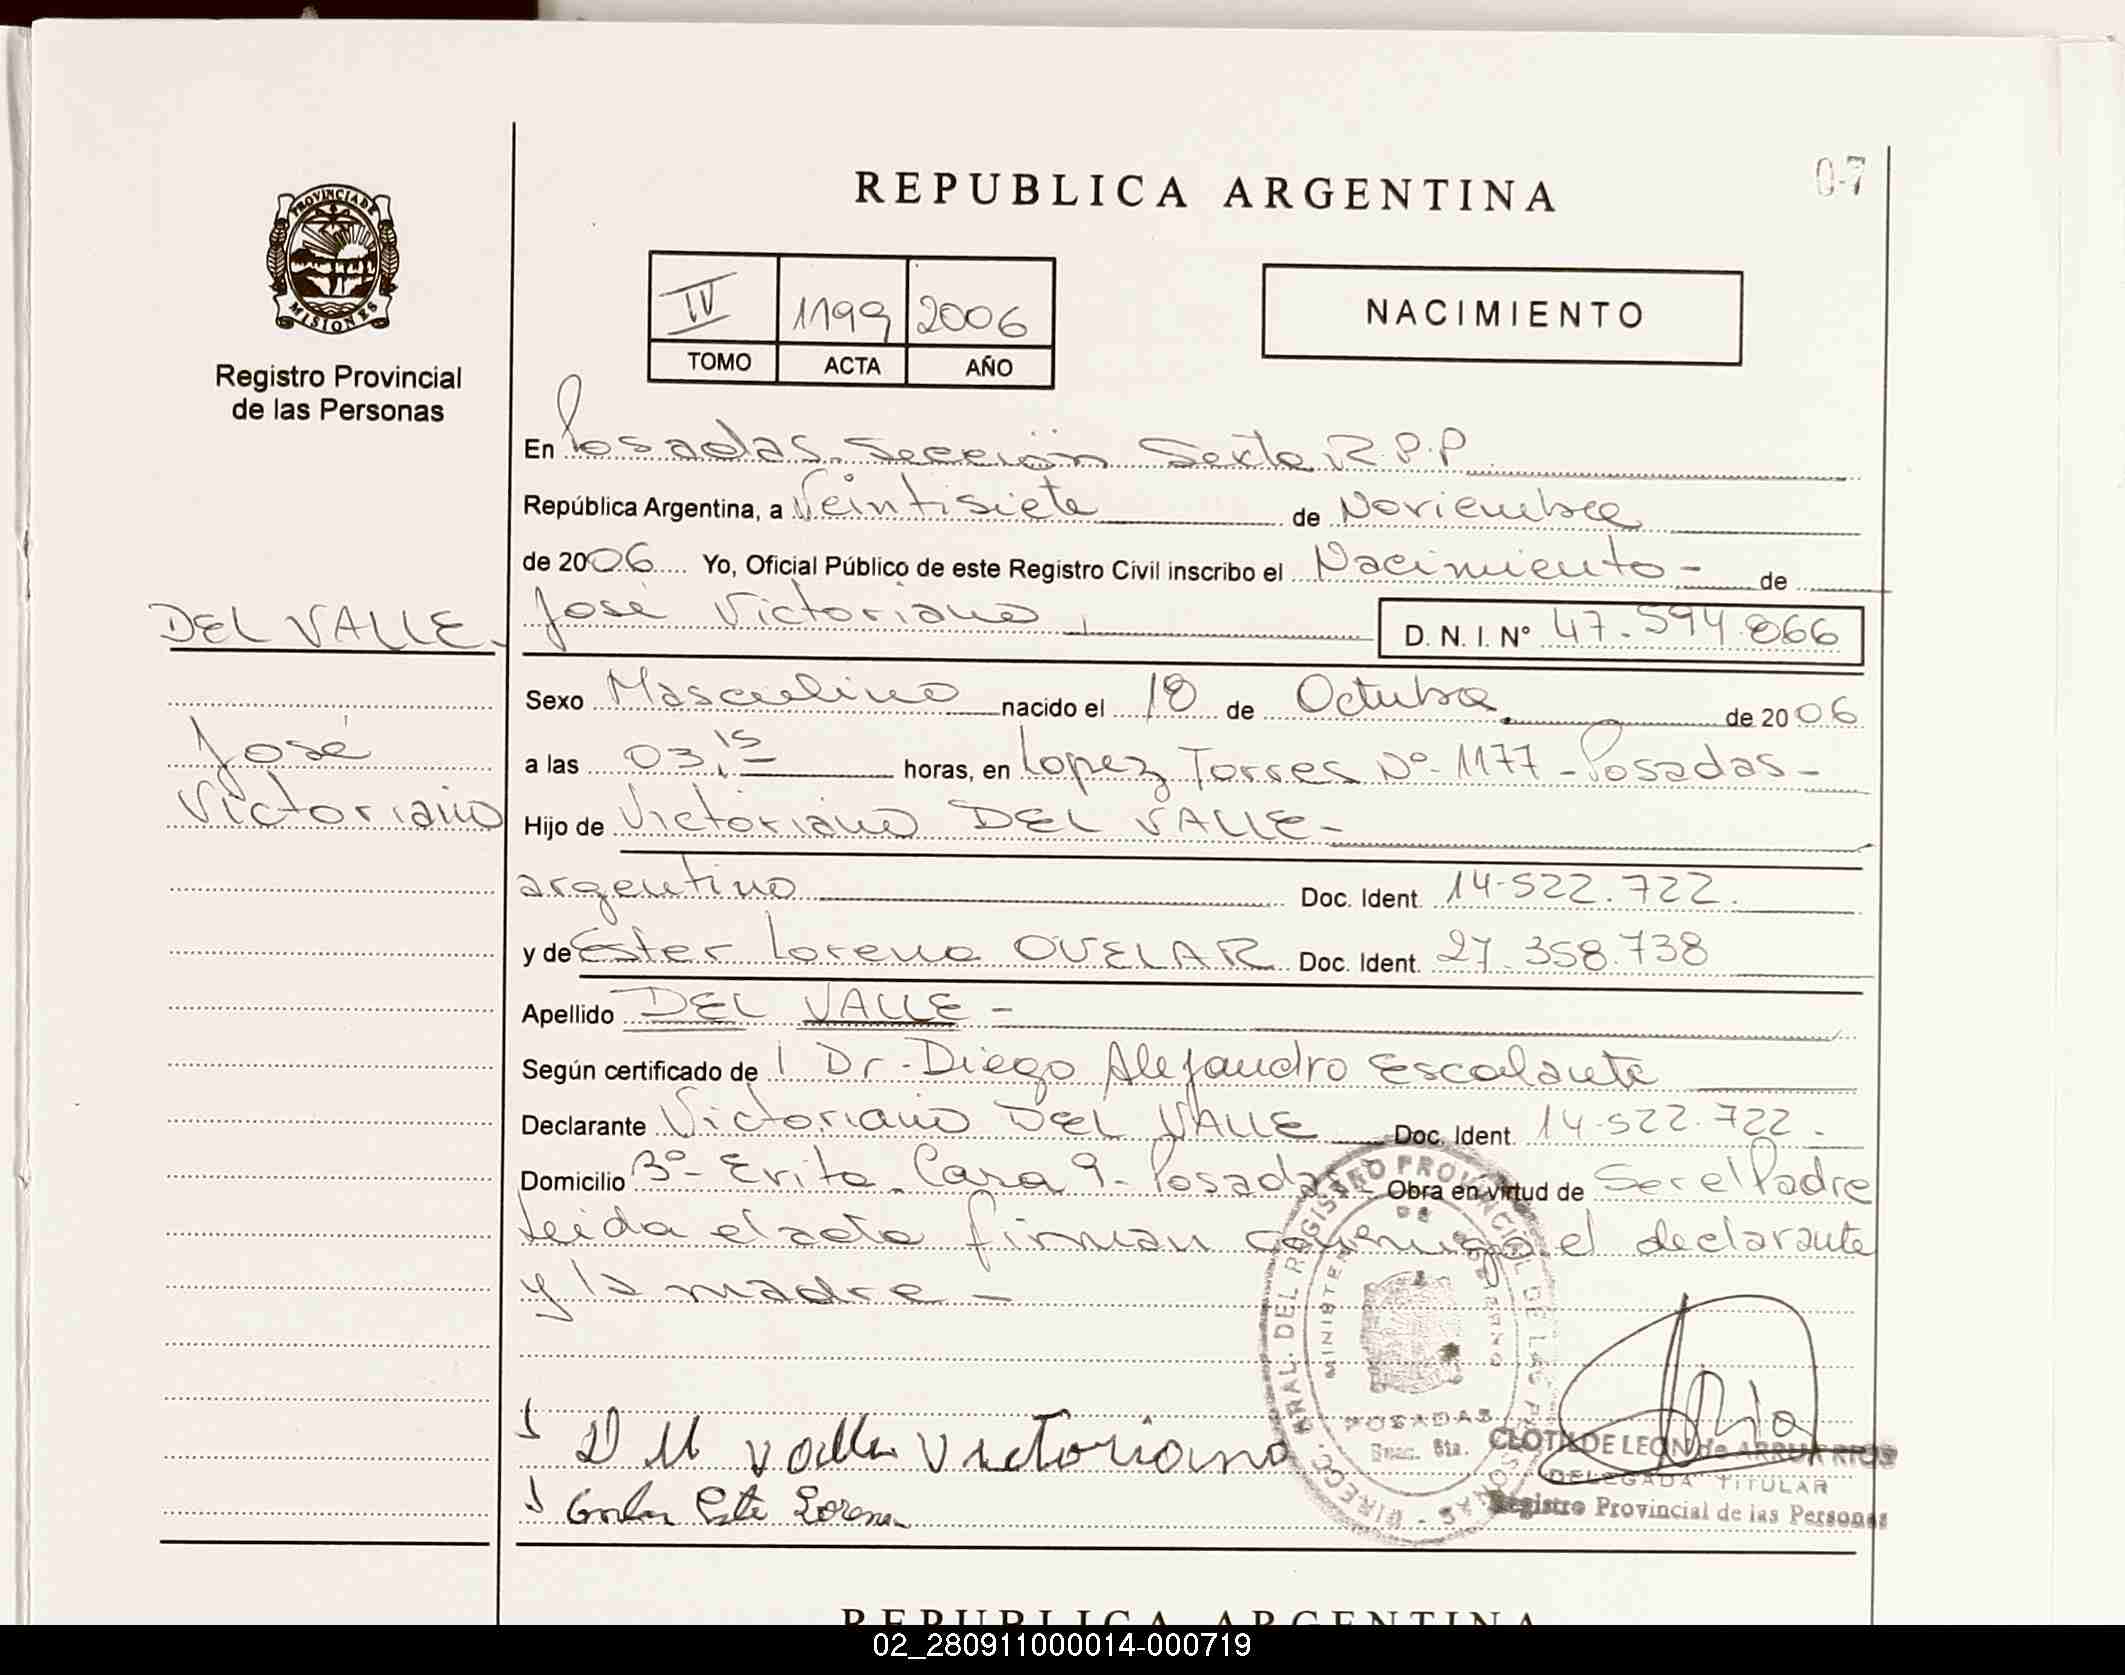 REPUBLICA ARGENTINA
07
PROVINCIA DE
MISIONES
Registro Provincial
de las Personas
IV 1199 2006
TOMO ACTA AÑO
NACIMIENTO
En Posadas. Sección Sexta R.P.P
República Argentina, a Veintisiete de Noviembre
de 2006 Yo, Oficial Público de este Registro Civil inscribo el Nacimiento - de
DEL VALLE - José Victoriano D. N. I. Nº 47.594.866
Sexo Masculino nacido el 18 de Octubre de 2006
José
a las 03,15 horas, en Lopez Torres Nº 1177 - Posadas -
Victoriano
Hijo de Victoriano DEL VALLE -
argentino Doc. Ident. 14.522.722.
y de Ester Lorena OVELAR Doc. Ident. 27.358.738
Apellido DEL VALLE -
Según certificado de Dr. Diego Alejandro Escalante
Declarante Victoriano DEL VALLE Doc. Ident. 14.522.722 -
Domicilio Bº Evita Casa 9 - Posadas - Obra en virtud de Ser el Padre
Leida el acta firman conmigo el declarante
y la madre -
DIRECC. GRAL. DEL REGISTRO PROVINCIAL DE LAS PERSONAS
MINISTERIO DE GOBIERNO
POSADAS
Secc. 6ta.
Valle Victoriano
Lorena
CLOTILDE LEON de ARRUA RIOS
DELEGADA TITULAR
Registro Provincial de las Personas
REPUBLICA ARGENTINA
02_280911000014-000719